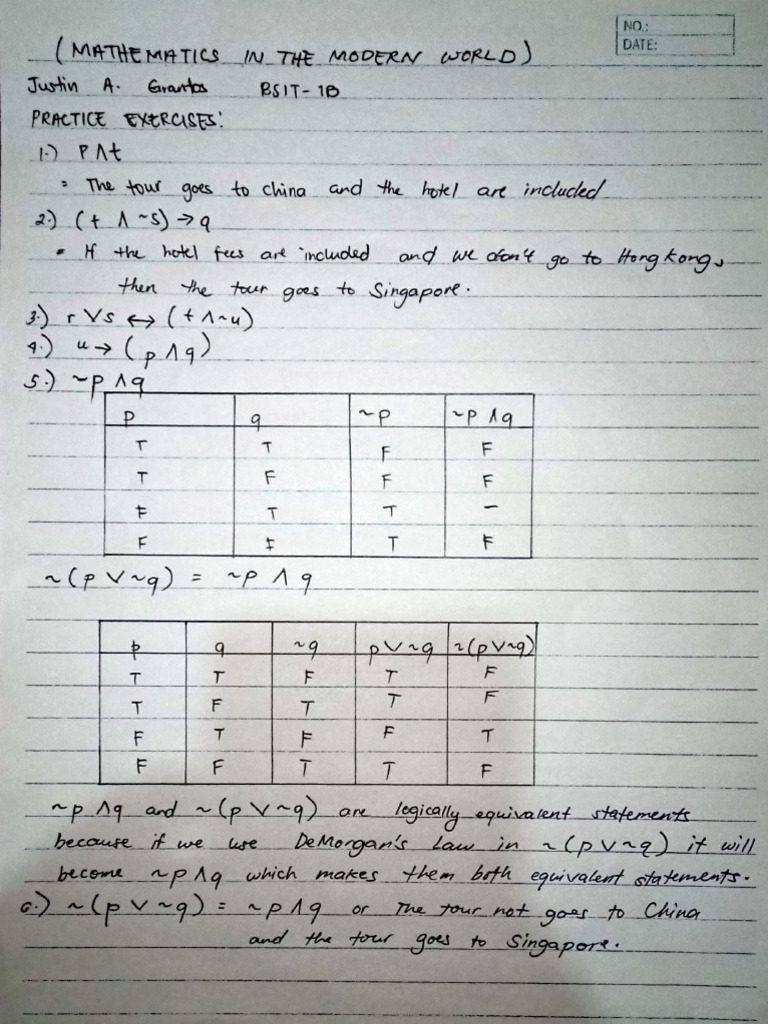 NO.:
DATE:
(MATHEMATICS IN THE MODERN WORLD)
Justin A. Grantos BSIT-1B
PRACTICE EXERCISES:
1.) P ∧ t
= The tour goes to china and the hotel are included
2.) (t ∧ ~s) → q
• If the hotel fees are included and we don't go to Hong kong,
then the tour goes to Singapore.
3.) r ∨ s ↔ (t ∧ ~u)
4.) u → (p ∧ q)
5.) ~p ∧ q
p q ~p ~p ∧ q
T T F F
T F F F
F T T –
F F T F
~(p ∨ ~q) = ~p ∧ q
p q ~q p ∨ ~q ~(p ∨ ~q)
T T F T F
T F T T F
F T F F T
F F T T F
~p ∧ q and ~(p ∨ ~q) are logically equivalent statements
because if we use DeMorgan's Law in ~(p ∨ ~q) it will
become ~p ∧ q which makes them both equivalent statements.
6.) ~(p ∨ ~q) = ~p ∧ q or The tour not goes to China
and the tour goes to Singapore.